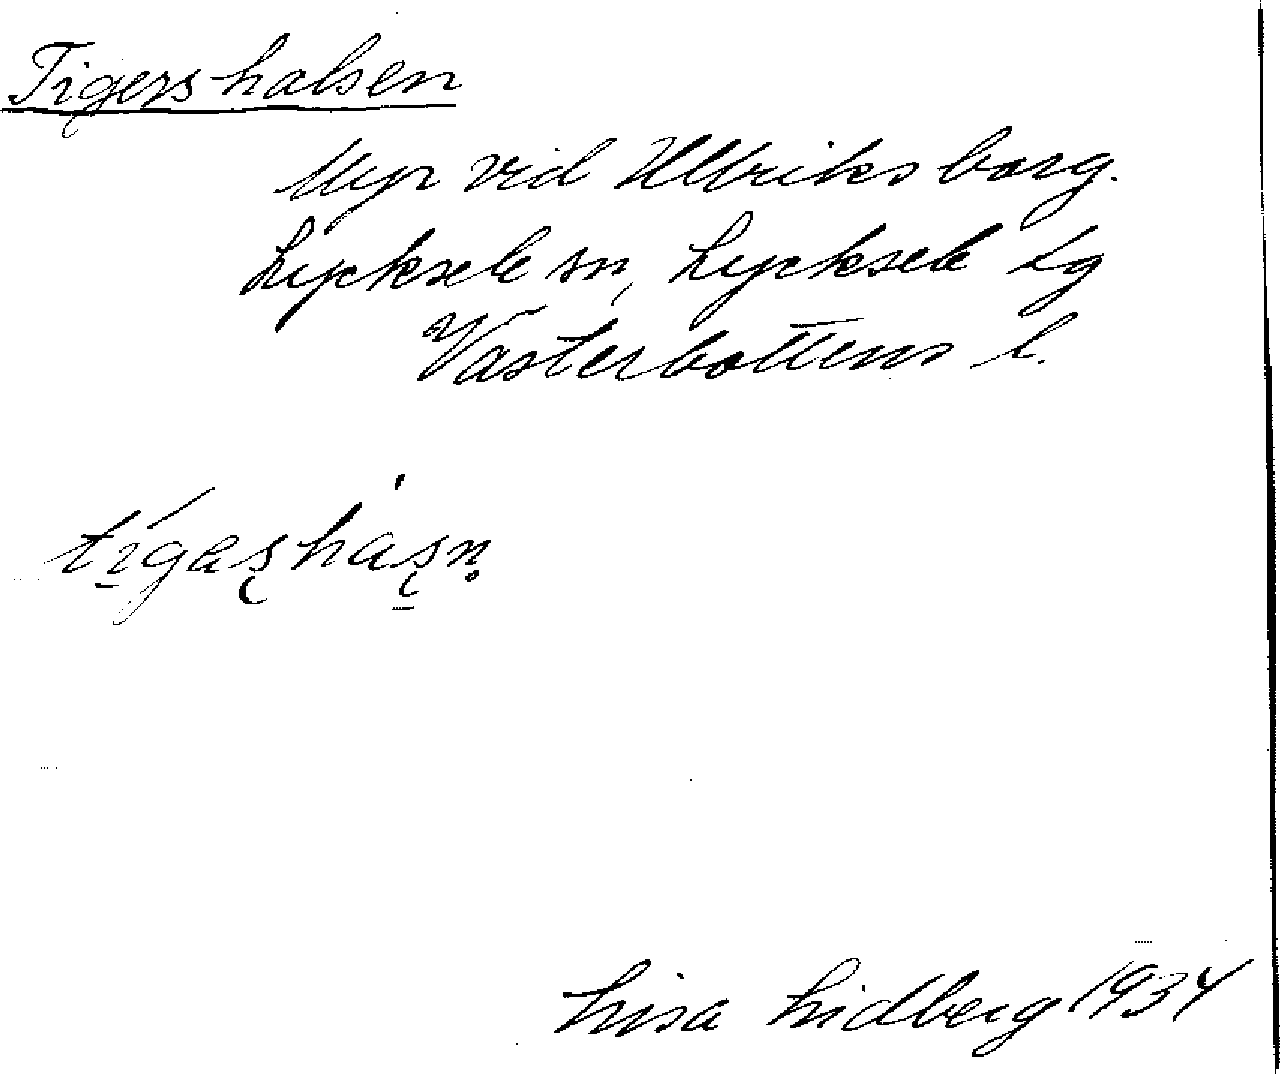 Tigershalsen
Myr vid Ullriksborg.
Lycksele sn, Lycksele lg
Västerbottens l.
Lisa Lidberg 1934